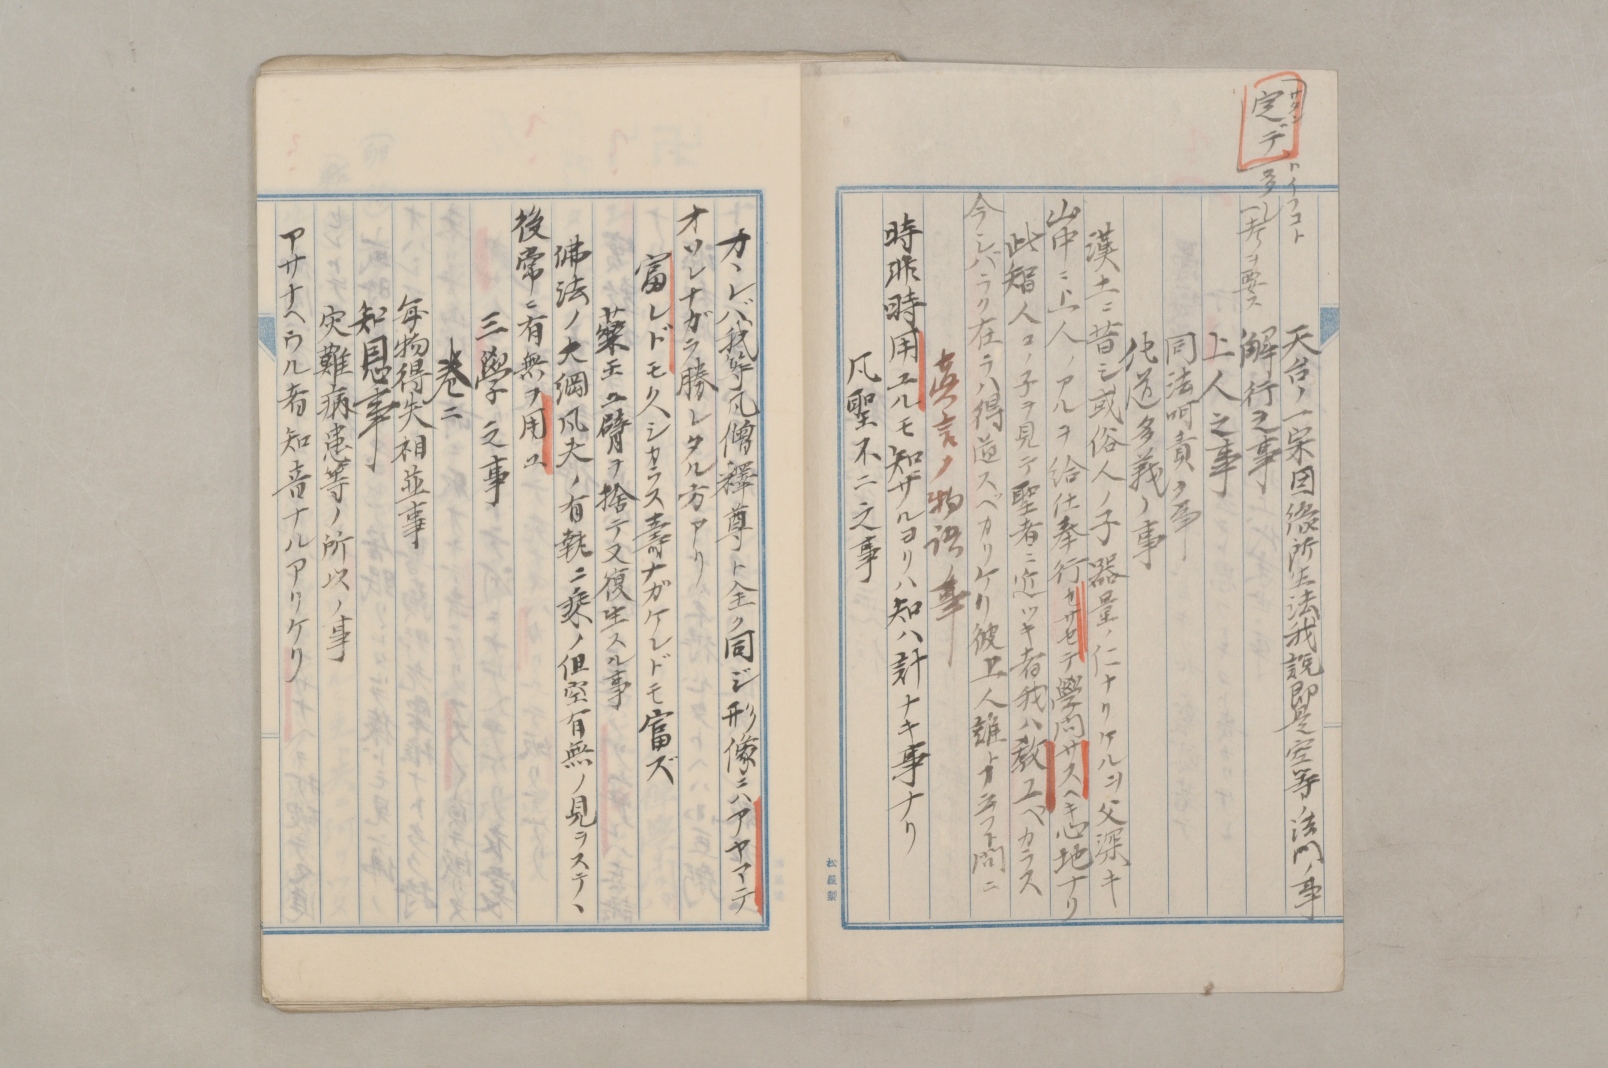 定デ
トイフコト
考ヲ要ス
天台ノ一宗因縁所生法我説即是空等ノ法門ノ事
解行之事
上人之事
同法呵責ノ事
化道多義ノ事
漢土ニ昔シ或俗人ノ子器量ノ仁ナリケルヲ父深キ
山中ニ上人ノアルヲ給仕奉行セサセテ學問サスヘキ心地ナリ
此智人コノ子ヲ見テ聖者ニ近ツキ者我ハ教エベカラス
今シバラク在ラハ得道スベカリケリ彼上人誰
問ニ
真言ノ物語ノ事
時非時用ユルモ知ザルヨリハ知ハ計ナキ事ナリ
凡聖不二之事
カヽレバ我等凡僧釋尊ト全ク同ジ形像ニハアヤマテ
オソレナガラ勝レタル方アリ
富レドモ久シカラス壽ナガケレドモ富ズ
藥王ノ臂ヲ捨テ又復生スル事
佛法ノ大綱凡夫ノ有執二乘ノ但空有無ノ見ヲステヽ
後常ニ有無ヲ用ユ
三學之事
巻二
毎物得失相並事
知恩事
災難病患等ノ所以ノ事
アサナヘウル者知音ナルアリケリ
松屋製